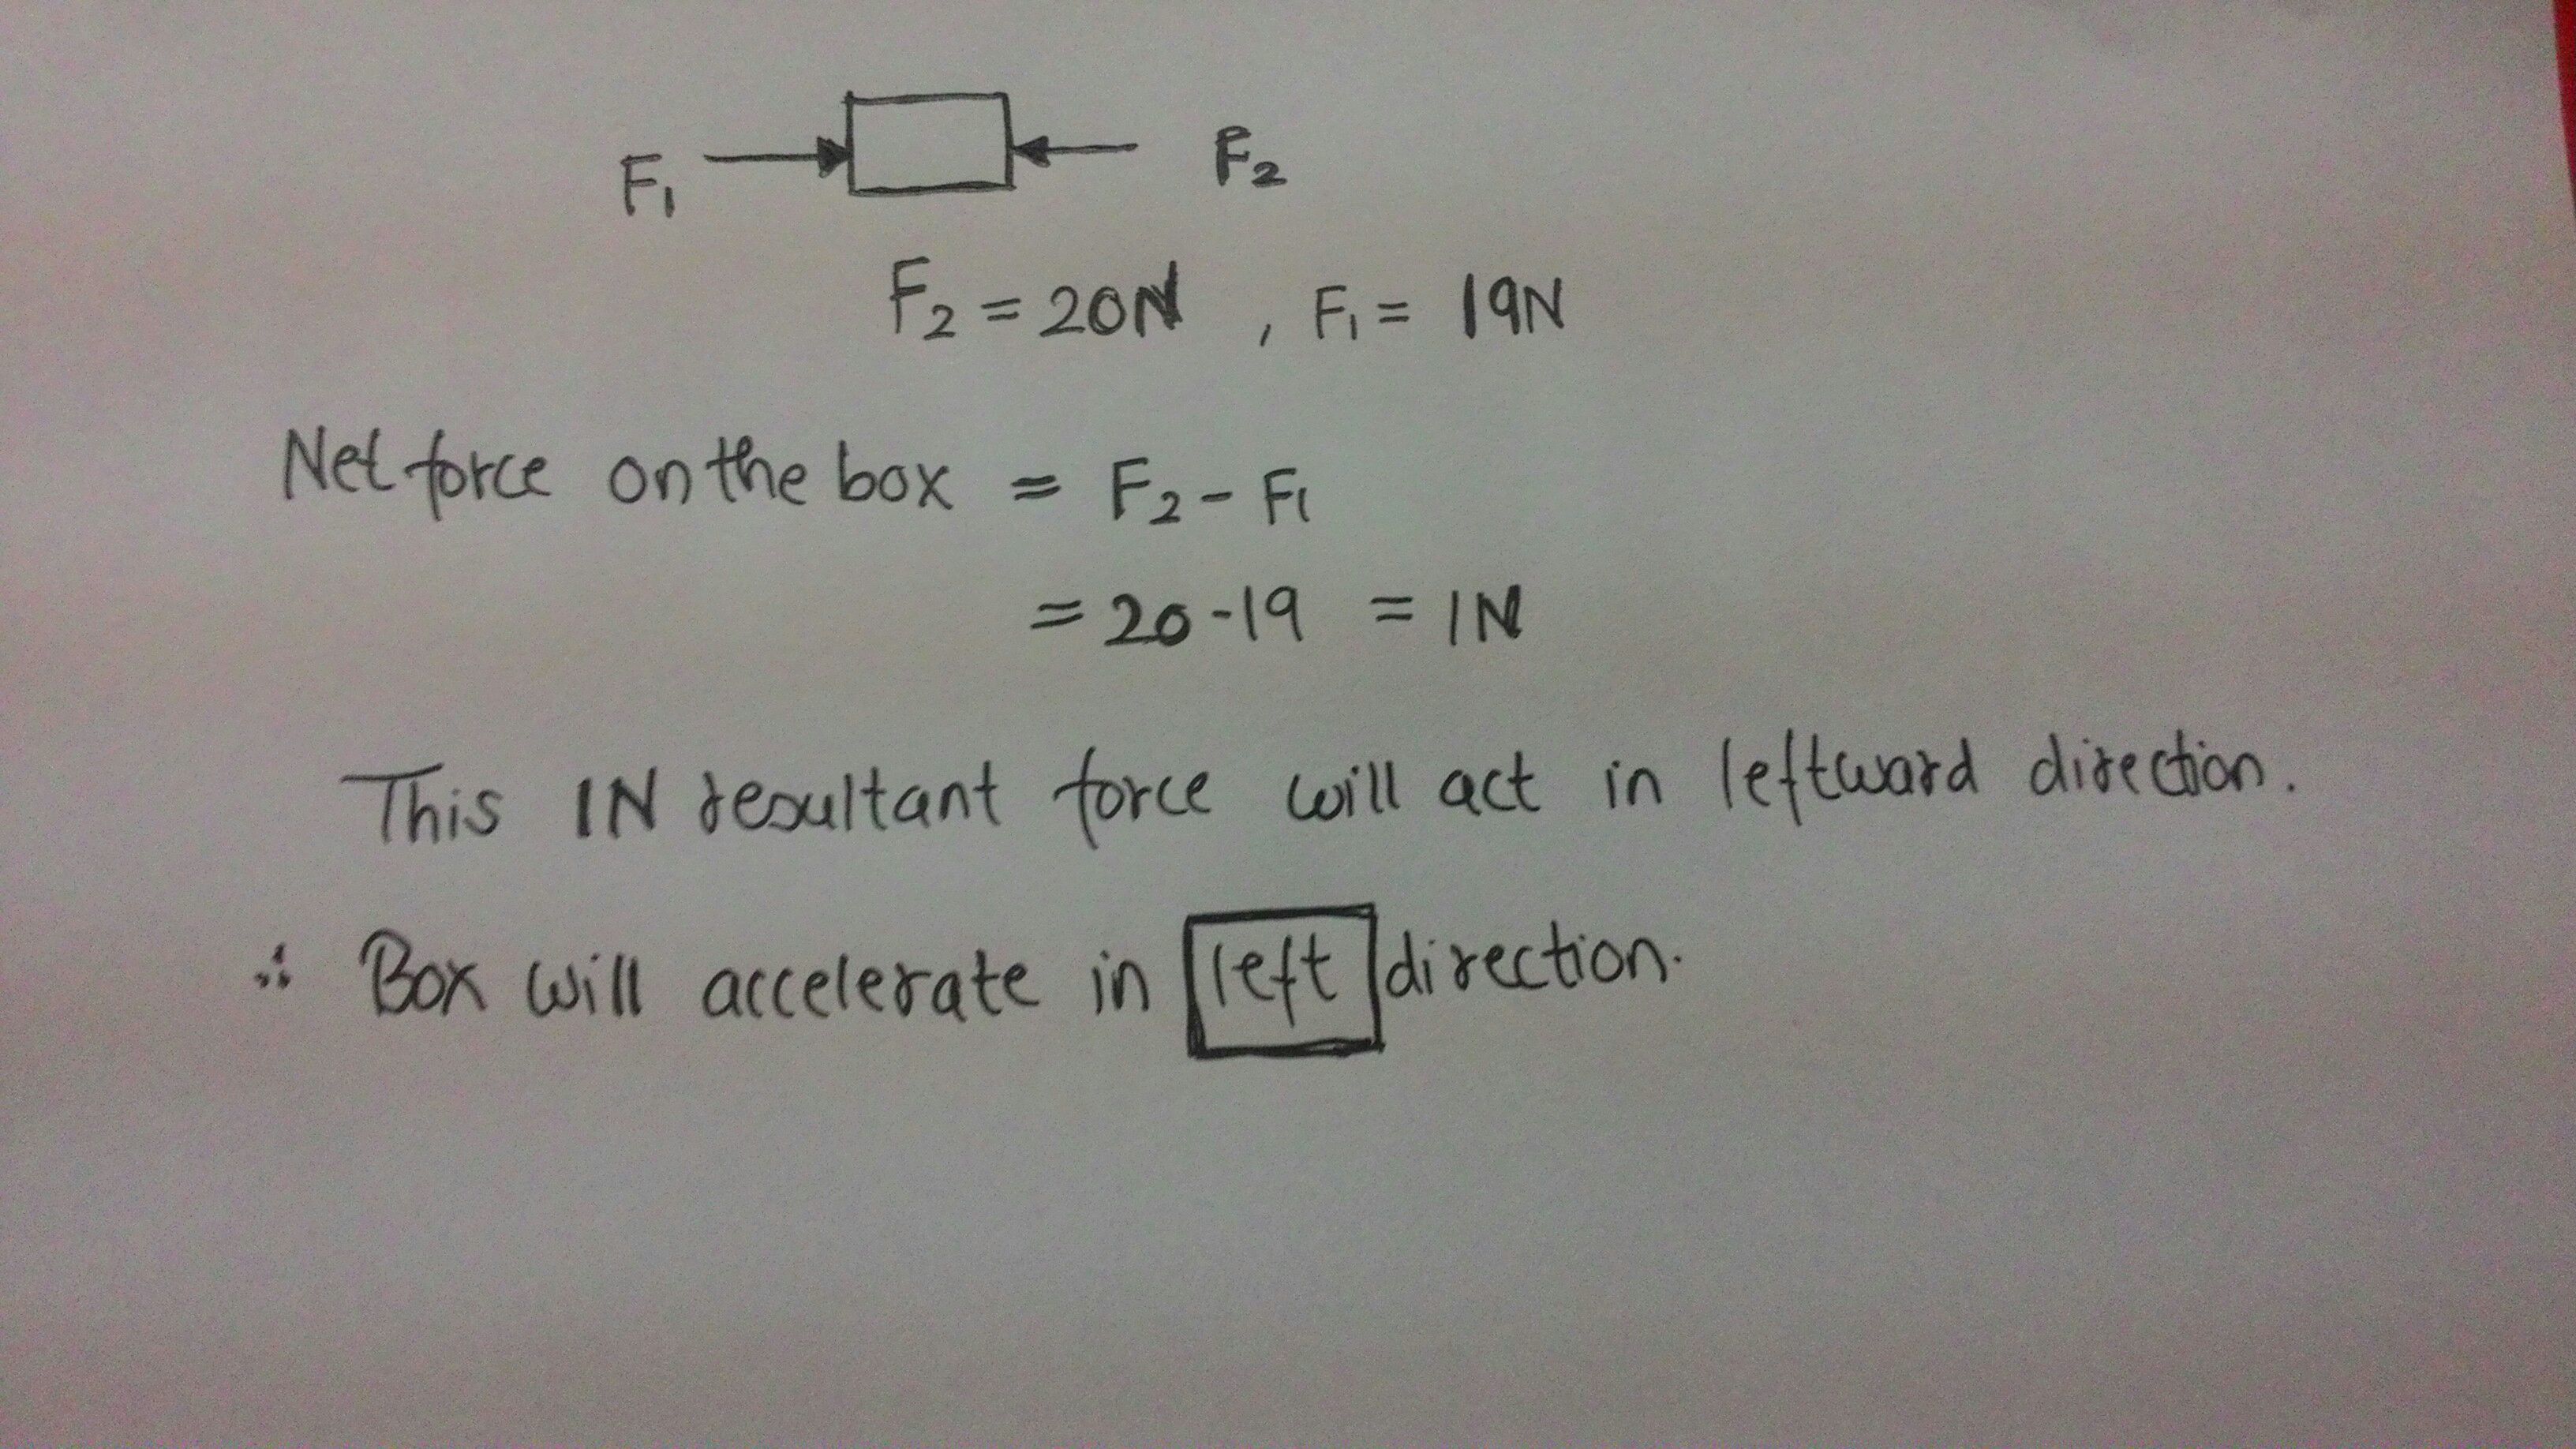 F₁ F₂
F₂ = 20N , F₁ = 19N
Net force on the box = F₂ - F₁
= 20 - 19 = 1N
This 1N resultant force will act in leftward direction.
∴ Box will accelerate in left direction.